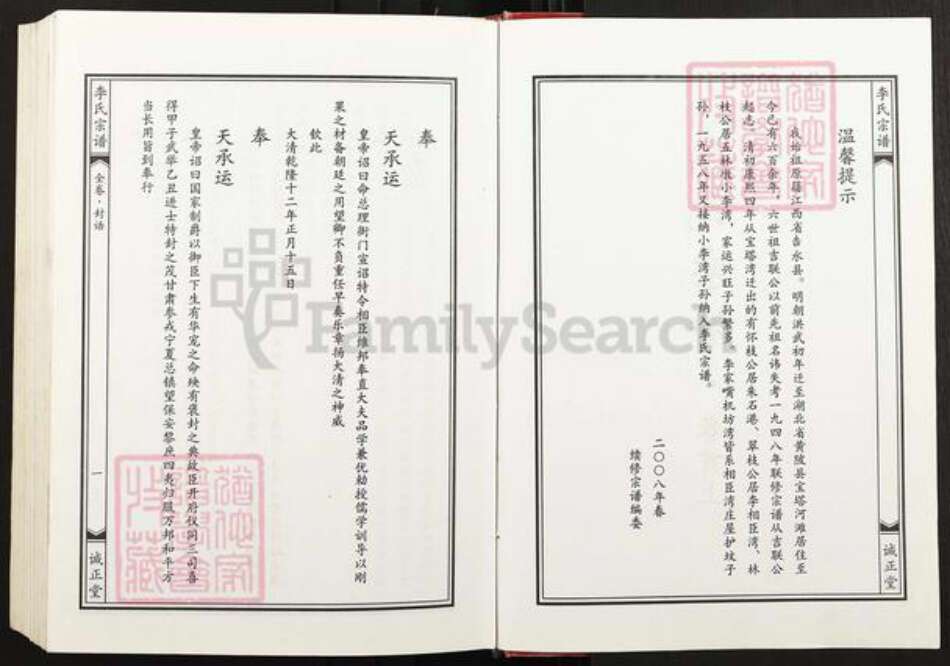 李氏宗谱
诚正堂
温馨提示
我始祖原籍江西省吉水县。明朝洪武初年迁至湖北省黄陂县宝塔河滩居住至
今已有六百余年，六世祖吉联公以前先祖名讳失考一九四八年联修宗谱从吉联公
起志。清初康熙四年从宝塔湾迁出的有怀枝公居朱石港、翠枝公居李相臣湾、林
枝公居五林墩小李湾，家运兴旺子孙繁多。李家嘴机坊湾皆系相臣湾庄屋护坟子
孙，一九五八年又接纳小李湾子孙纳入李氏宗谱。
二〇〇八年春
续修宗谱编委
奉
天承运
皇帝诏曰命总理衙门宣诏特令相臣维邦奉直大夫品学兼优勅授儒学训导以刚
果之材备朝廷之用望卿不负重任早奏乐章扬大清之神威
钦此
大清乾隆十二年正月十五日
奉
天承运
皇帝诏曰国家制爵以御臣下生有华宠之命殁有褒封之典故臣开府仪同三司喜
得甲子武举乙丑进士特封之茂甘肃参戎宁夏总镇望保安黎庶四夷归服万邦和平方
当长用皆到奉行
李氏宗谱
全卷·封诰
一
诚正堂
FamilySearch